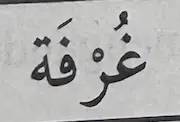 غُرْفَة